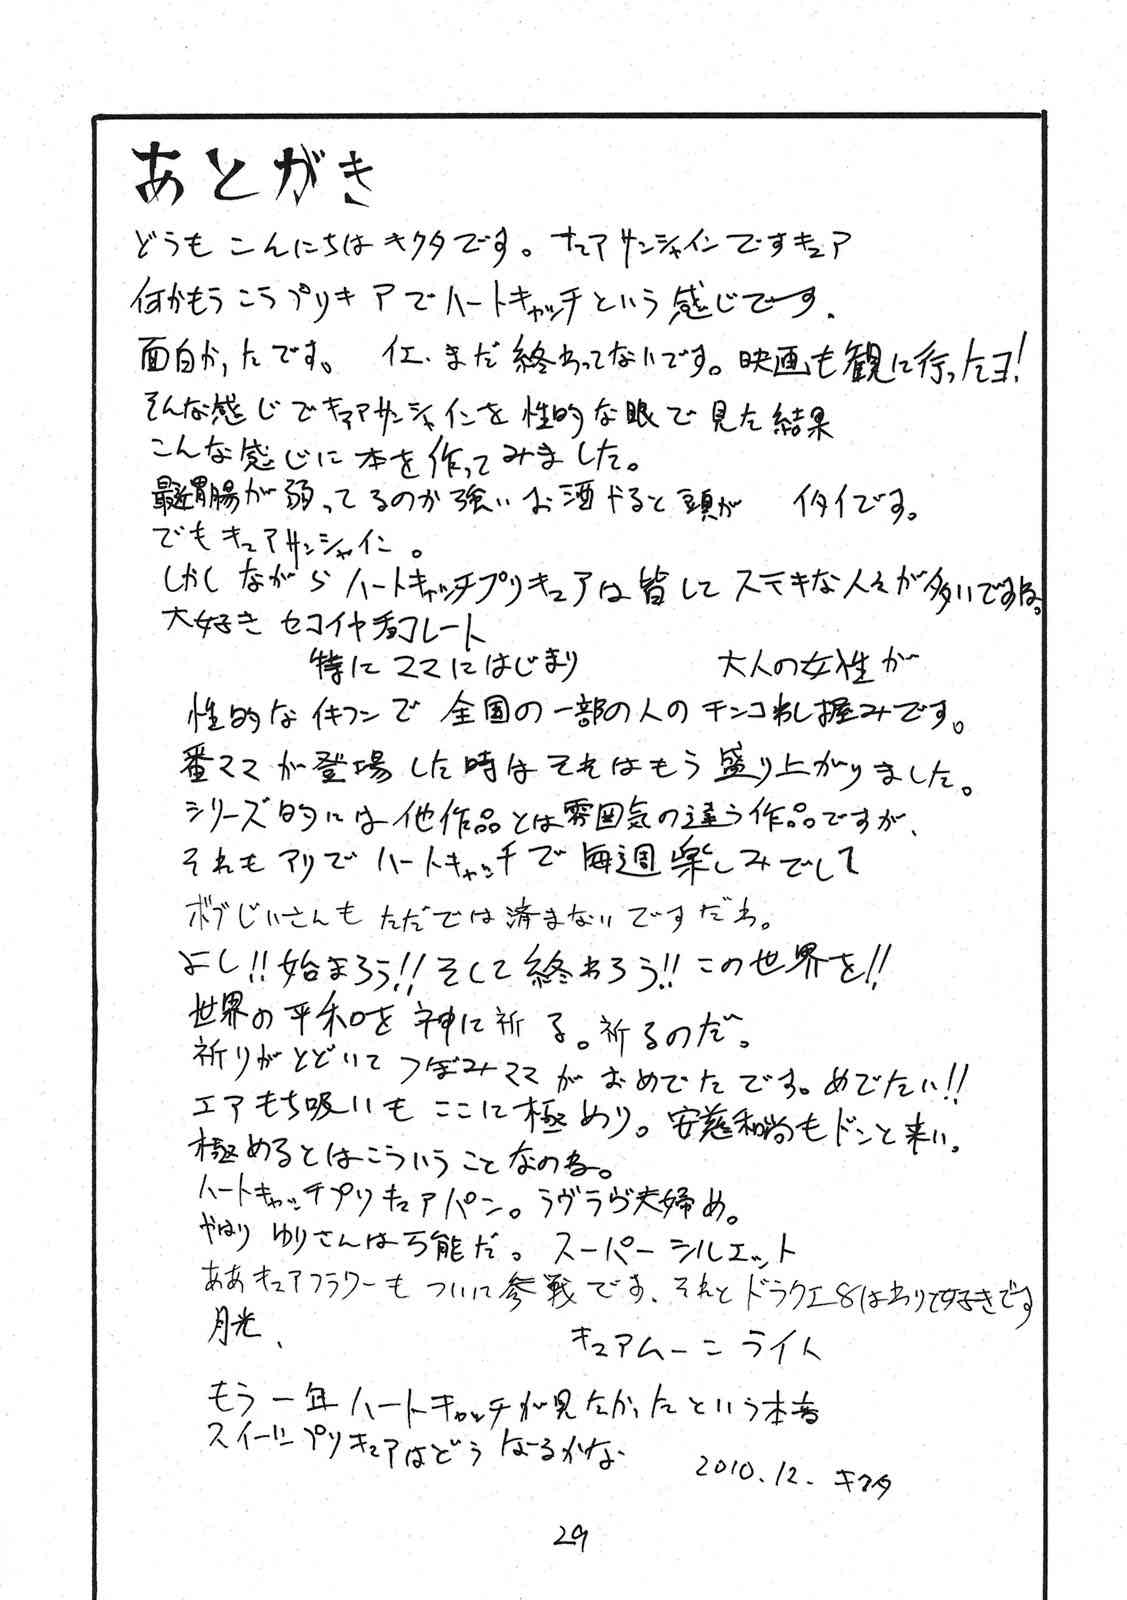 あとがき
どうも こんにちは キクタです。 キュアサンシャインですキュア
何かもう こう プリキアで ハートキャッチ という 感じです.
面白かったです。 イエ、まだ終わってないです。映画も観に行ったヨ!
そんな感じでキュアサンシャインを性的な眼で見た結果
こんな感じに本を作ってみました。
最近胃腸が弱ってるのか強いお酒やると頭が イタイです。
でもキュアサンシャイン。
しかしながら ハートキャッチプリキュアは皆して ステキな人々が多いですね。
大好き セコイヤチョコレート
特に ママにはじまり 大人の女性が
性的なイキフンで 全国の一部の人のチンコわし握みです。
番ママが登場した時はそれはもう盛り上がりました。
シリーズ的には他作品とは雰囲気の違う作品ですが、
それもアリで ハートキャッチで 毎週楽しみでして
ボブじいさんも ただでは済まないですだわ。
よし!!始まろう!!そして終わろう!!この世界を!!
世界の平和を神に祈る。祈るのだ。
祈りがとどいて つぼみママが おめでたです。めでたい!!
エアもち吸いも ここに極めり。安慈和尚もドンと来い。
極めるとはこういうことなのね。
ハートキャッチプリキュアパン。ラヴラヴ夫婦め。
やはり ゆりさんは万能だ。 スーパーシルエット
ああキュアフラワーも ついに参戦です、それとドラクエ8はわりと好きです
月光、 キュアムーンライト
もう一年 ハートキャッチが見たかったという本音
スイートプリキュアはどうなるかな
2010.12. キクタ
29